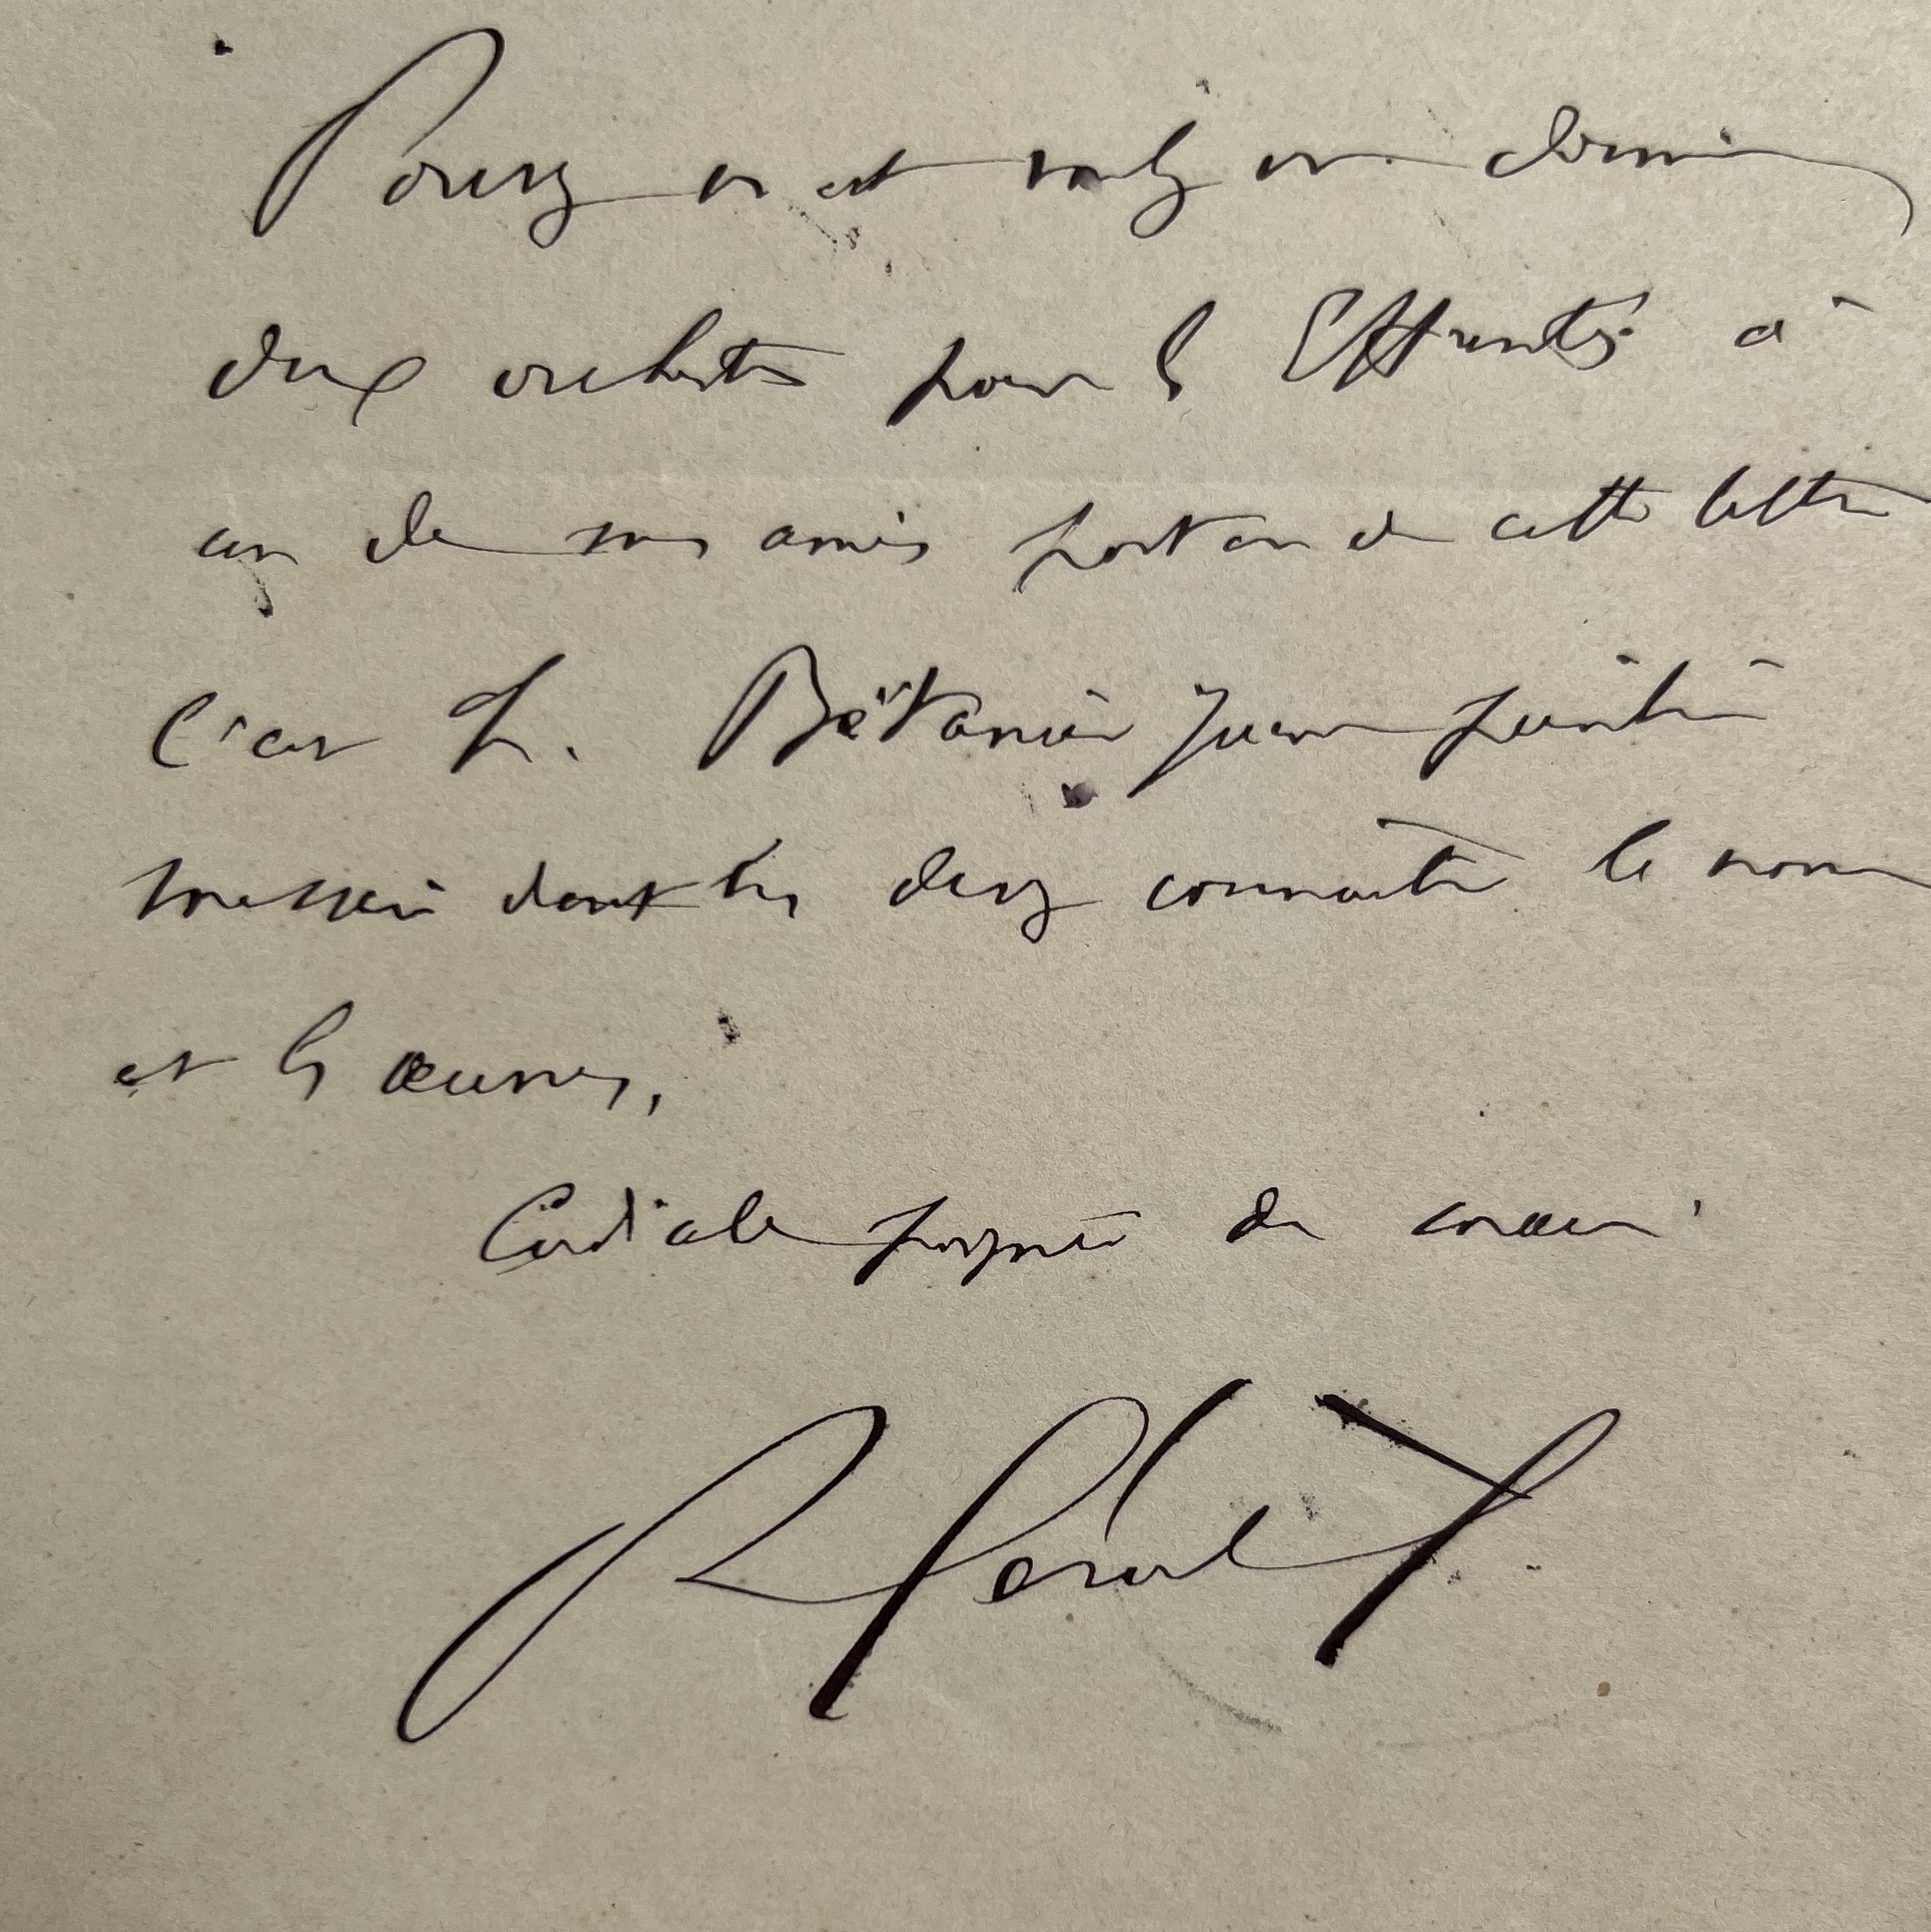 Pouvez vs et voulez vs donner
deux orchestres pour les Effrontés à
un de mes amis porteur de cette lettre
C'est M. Bétannier jeune peintre
messin dont vs devez connaitre le nom
et les œuvres,
Cordiale poignée de main